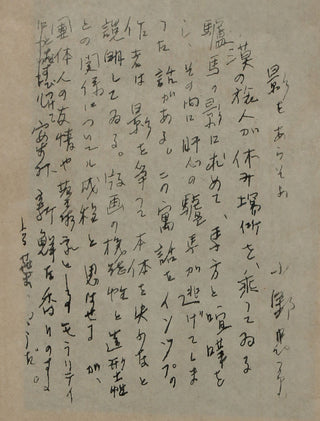 影をあらそふ 小野忠
漠の旅人が休み場所を、乗つてゐる
驢馬の影に求めて、馬方と喧嘩を
し、その内に肝心の驢馬が逃げてしま
つた話がある。この寓話をイソップの
作者は、影を争つて本体を失ふなと
説明してゐる。版画の機能性と造形性
との関係についても成程と思はせるが、
団体人の友情や芸術家としてのモラリティ
新鮮な香りのする
言葉